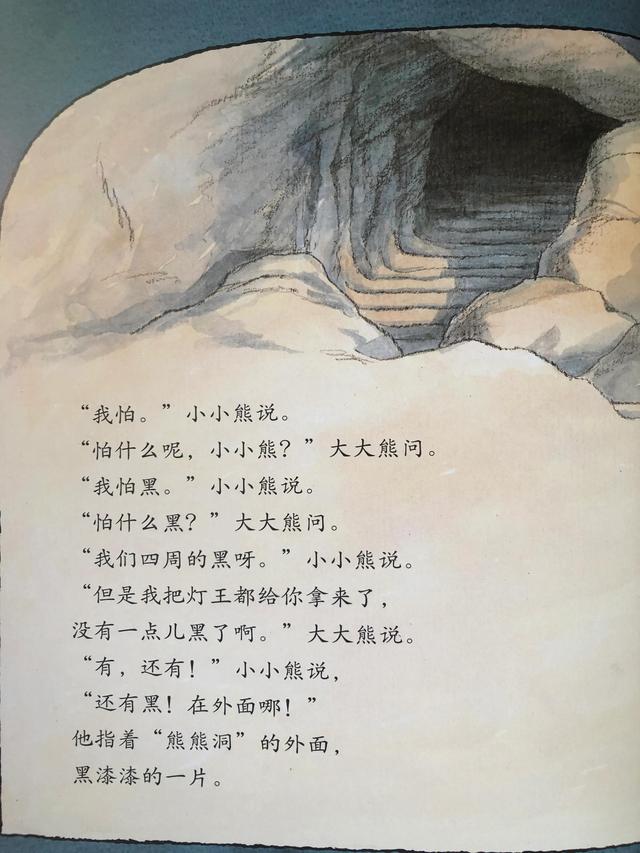 “我怕。”小小熊说。
“怕什么呢，小小熊？”大大熊问。
“我怕黑。”小小熊说。
“怕什么黑？”大大熊问。
“我们四周的黑呀。”小小熊说。
“但是我把灯王都给你拿来了，
没有一点儿黑了啊。”大大熊说。
“有，还有！”小小熊说，
“还有黑！在外面哪！”
他指着“熊熊洞”的外面，
黑漆漆的一片。